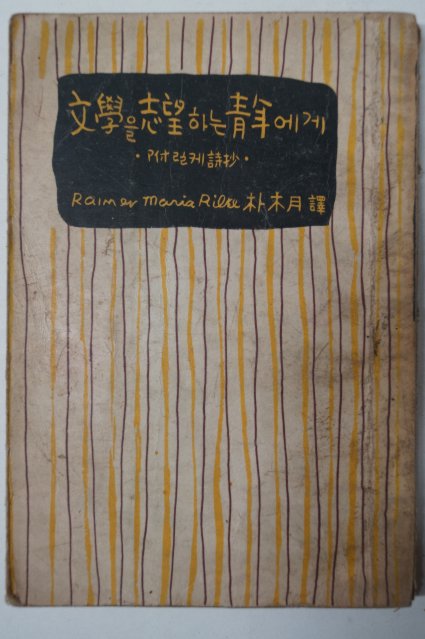 文學을 志望하는 青年에게
·附 릴케 詩抄·
Rainer Maria Rilke 朴木月 譯